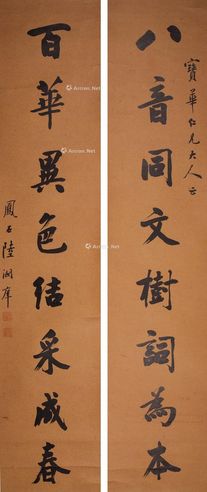 寶華仁兄大人正
八音同文樹詞為本
百華異色結采成春
鳳石陸潤庠
Artron.Net
Artron.Net
Artron.Net
Artron.Net